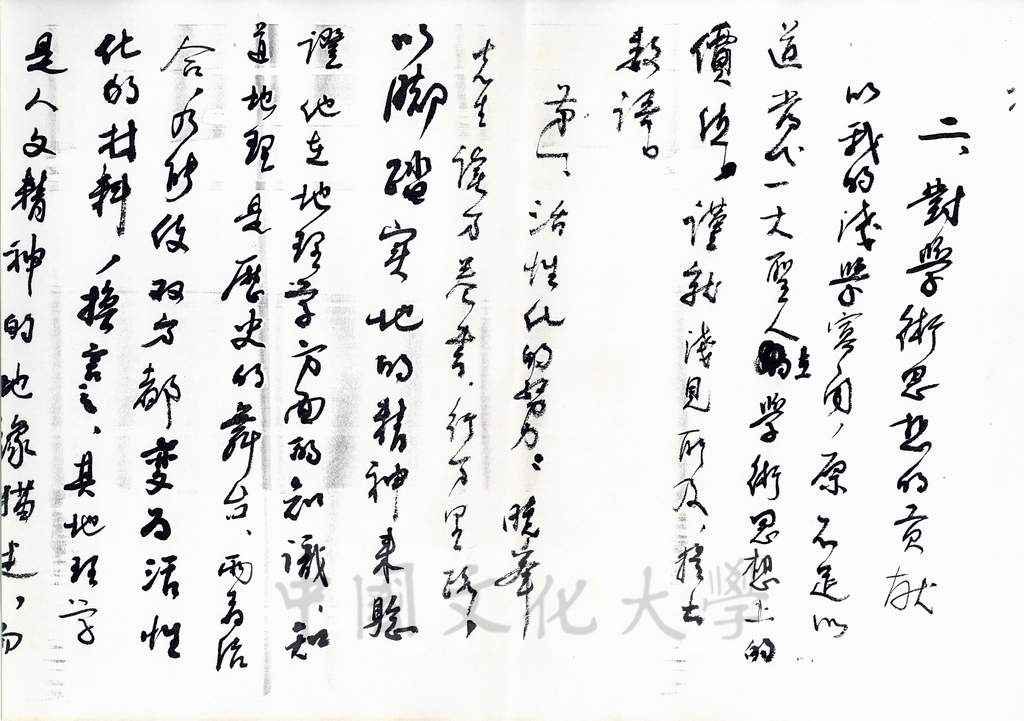 二、對學術思想的貢献
以我的淺學寡聞，原不足以
道當代一大聖人在學術思想上的
價值。謹就淺見所及，提出
数語。
第一、活性化的努力：曉峯
先生讀万卷書，行万里路，
以脚踏实地的精神來驗
證他在地理学方面的知識、知
道地理是歷史的舞台、兩者治
合，乃能使双方都变为活性
化的材料，換言之、其地理学
是人文精神的地緣描述，而
中國文化大學